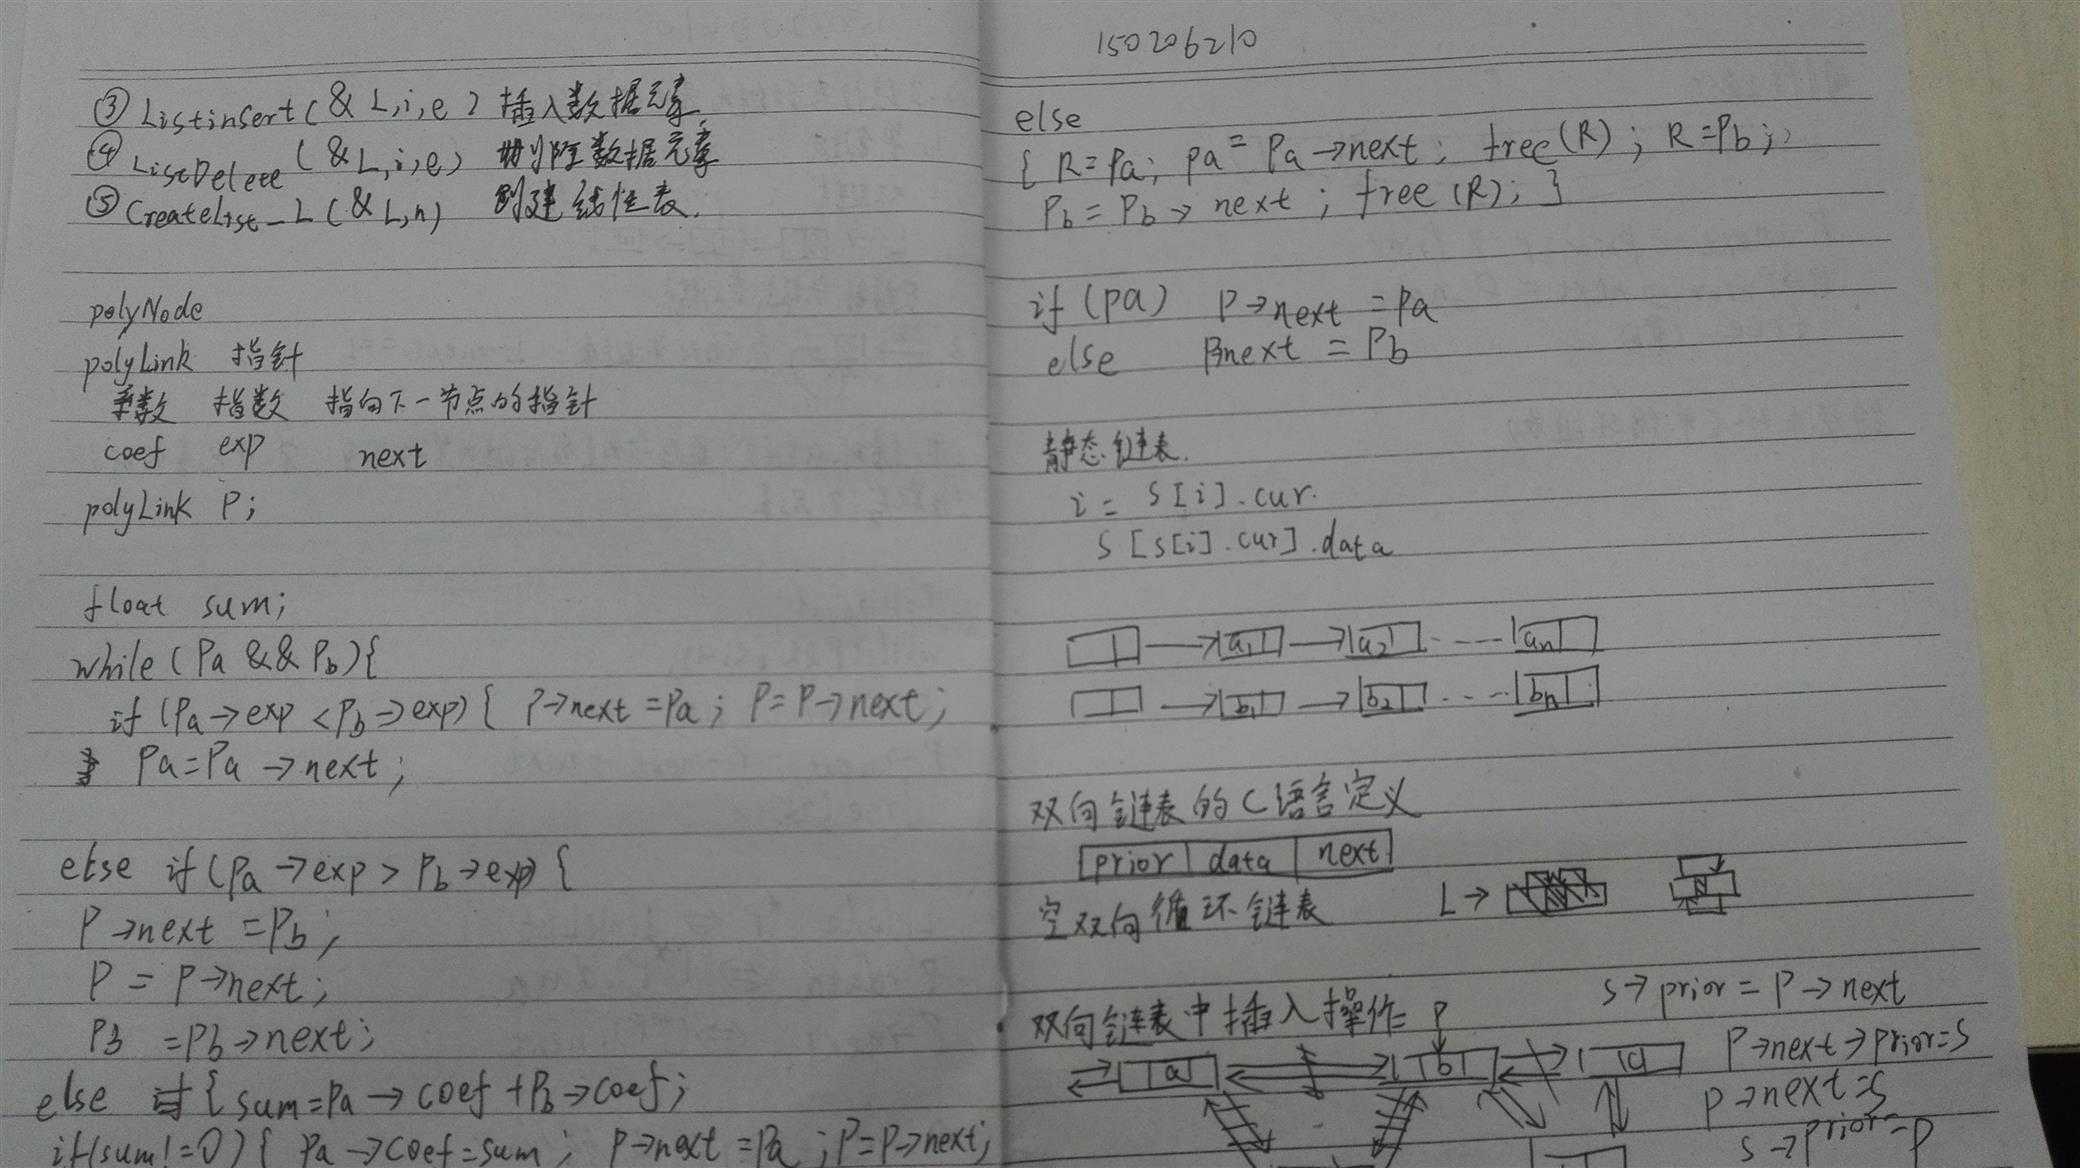 ③ Listinsert(& L,i,e) 插入数据元素
④ ListDelete (& L,i,e) 删除数据元素
⑤ CreateList_L(& L,n) 创建线性表.
polyNode
polyLink 指针
系数 指数 指向下一节点的指针
coef exp next
polyLink P;
float sum;
while(Pa && Pb){
if(Pa→exp <Pb→exp){ P→next =Pa; P=P→next;
Pa=Pa →next;
else if(Pa →exp > Pb→exp){
P→next =Pb;
P = P→next;
PB =Pb→next;
else {sum=Pa → coef +Pb→coef;
if(sum!=0){ Pa →coef=sum; P→next =Pa ;P=P→next;
150206210
else
{ R=Pa; Pa= Pa→next; free(R); R=Pb;
Pb= Pb→ next; free(R); }
if (pa) P→next =Pa
else next = Pb
静态链表.
i= S[i].cur.
S [s[i].cur].data
a1 a2 ---- an
b1 b2 ---- bn
双向链表的C语言定义
prior data next
空双向循环链表 L→
s→prior = P→next
双向链表中插入操作 P
a b c P→next→prior=s
P→next=s
s→prior=P